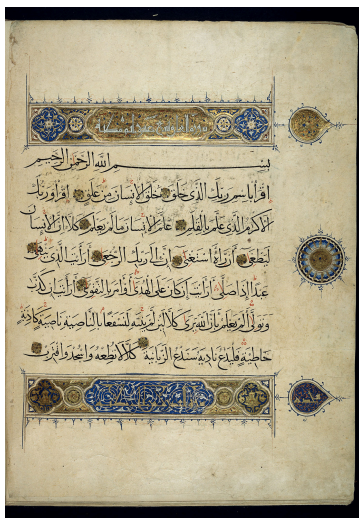 بسم الله الرحمن الرحيم
اقرا باسم ربك الذي خلق خلق الانسان من علق اقرا وربك
الاكرم الذي علم بالقلم علم الانسان ما لم يعلم كلا ان الانسان
ليطغى ان راه استغنى ان الى ربك الرجعى ارايت الذي ينهى
عبدا اذا صلى ارايت ان كان على الهدى او امر بالتقوى ارايت ان كذب
وتولى الم يعلم بان الله يرى كلا لئن لم ينته لنسفعا بالناصية ناصية كاذبة
خاطئة فليدع ناديه سندع الزبانية كلا لا تطعه واسجد واقترب